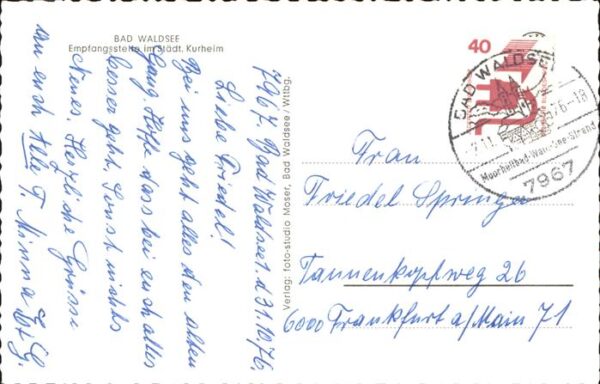 BAD WALDSEE
Empfangsstelle im Städt. Kurheim
7967. Bad Waldsee. d 31.10.76.
Liebe Friedel!
Bei uns geht alles den alten
Gang. Hoffe dass bei euch alles
besser geht. Sonst nichts
Neues. Herzliche Grüsse
an euch alle T. Minna
Verlag: foto-studio Moser, Bad Waldsee/Wttbg.
40
BAD WALDSEE
76-18
Moorheilbad-Waldsee-Strand
7967
Frau
Friedel Springer
Tannenkopfweg 26
6000 Frankfurt a/Main 71